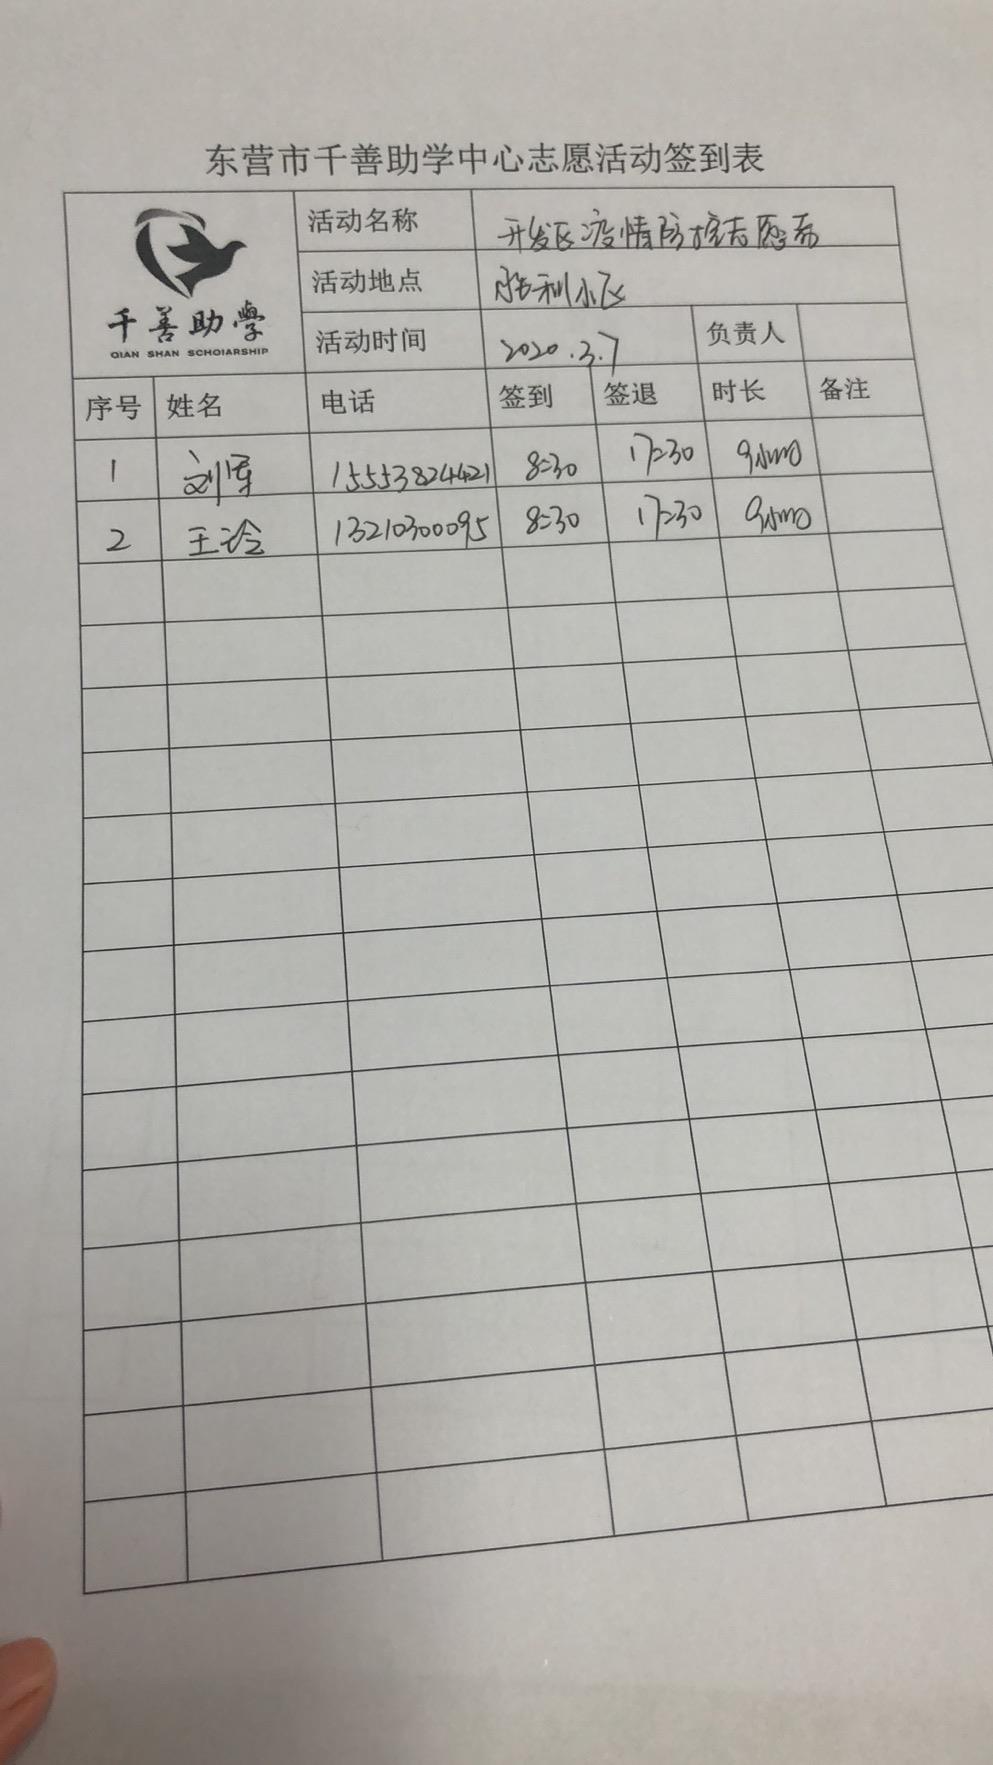 东营市千善助学中心志愿活动签到表
千善助學
QIAN SHAN SCHOIARSHIP
活动名称 开发区疫情防控志愿者
活动地点 胜利小区
活动时间 2020.3.7 负责人
序号 姓名 电话 签到 签退 时长 备注
1 刘军 15553824421 8:30 17:30 9小时
2 王玲 13210300095 8:30 17:30 9小时